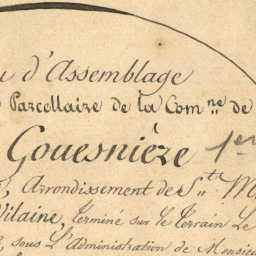 d'Assemblage
Parcellaire de la Com.ne de
Gouesnière 1er
Arrondissement de S.t M
Vilaine, terminé sur le terrain le
sous l'Administration de Monsieu